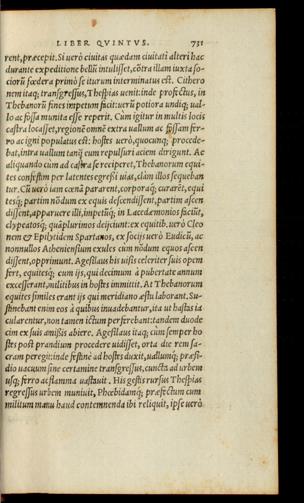 LIBER QVINTVS. 731
rent, præcepit. Si uerò ciuitas quædam ciuitati alteri hac
durante expeditione bellũ intulisset, cõtra illam iuxta so-
ciorũ fœdera primò se iturum interminatus est. Cithero
nem itaq; transgressus, Thespias uenit: inde profectus, in
Thebanorũ fines impetum facit: uerũ potiora undiq; ual-
lo ac fossa munita esse reperit. Cum igitur in multis locis
castra locasset, regionẽ omnẽ extra uallum ac fossam fer-
ro ac igni populatus est: hostes uerò, quocunq; procede-
bat, intra uallum tanq̃ eum repulsuri aciem dirigunt. Ac
aliquando cum ad castra se reciperet, Thebanorum equi-
tes confestim per latentes egreßi uias, clàm illos sequeban
tur. Cũ uerò iam cœnã pararent, corporaq; curarẽt, equi
tesq; partim nõdum ex equis descendissent, partim ascen
dissent, apparuere illi, impetũq; in Lacedæmonios faciũt,
clypeatosq; quàm plurimos deijciunt: ex equitib. uerò Cleo
nem & Epilytidem Spartanos, ex socijs uerò Eudicũ, ac
nonnullos Atheniensium exules cùm nõdum equos ascen
dissent, opprimunt. Agesilaus his uisis celeriter suis opem
fert, equitesq; cum ijs, qui decimum à pubertate annum
excesserant, militibus in hostes immittit. At Thebanorum
equites similes erant ijs qui meridiano æstu laborant. Su-
stinebant enim eos à quibus inuadebantur, ita ut hastas ia
cularentur, non tamen ictum perferebant: tandem duode
cim ex suis amißis abiere. Agesilaus itaq; cùm semper ho
stes post prandium procedere uidisset, orta die rem sa-
cram peregit: inde festinè ad hostes duxit, uallumq; præsi-
dio uacuum sine certamine transgressus, cuncta ad urbem
usq; ferro ac flamma uastauit. His gestis rursus Thespias
regressus urbem muniuit, Phœbidamq; præfectum cum
militum manu haud contemnenda ibi reliquit, ipse uerò